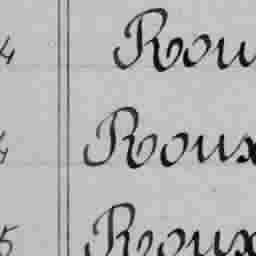 4 Rou
4 Roux
5 Roux